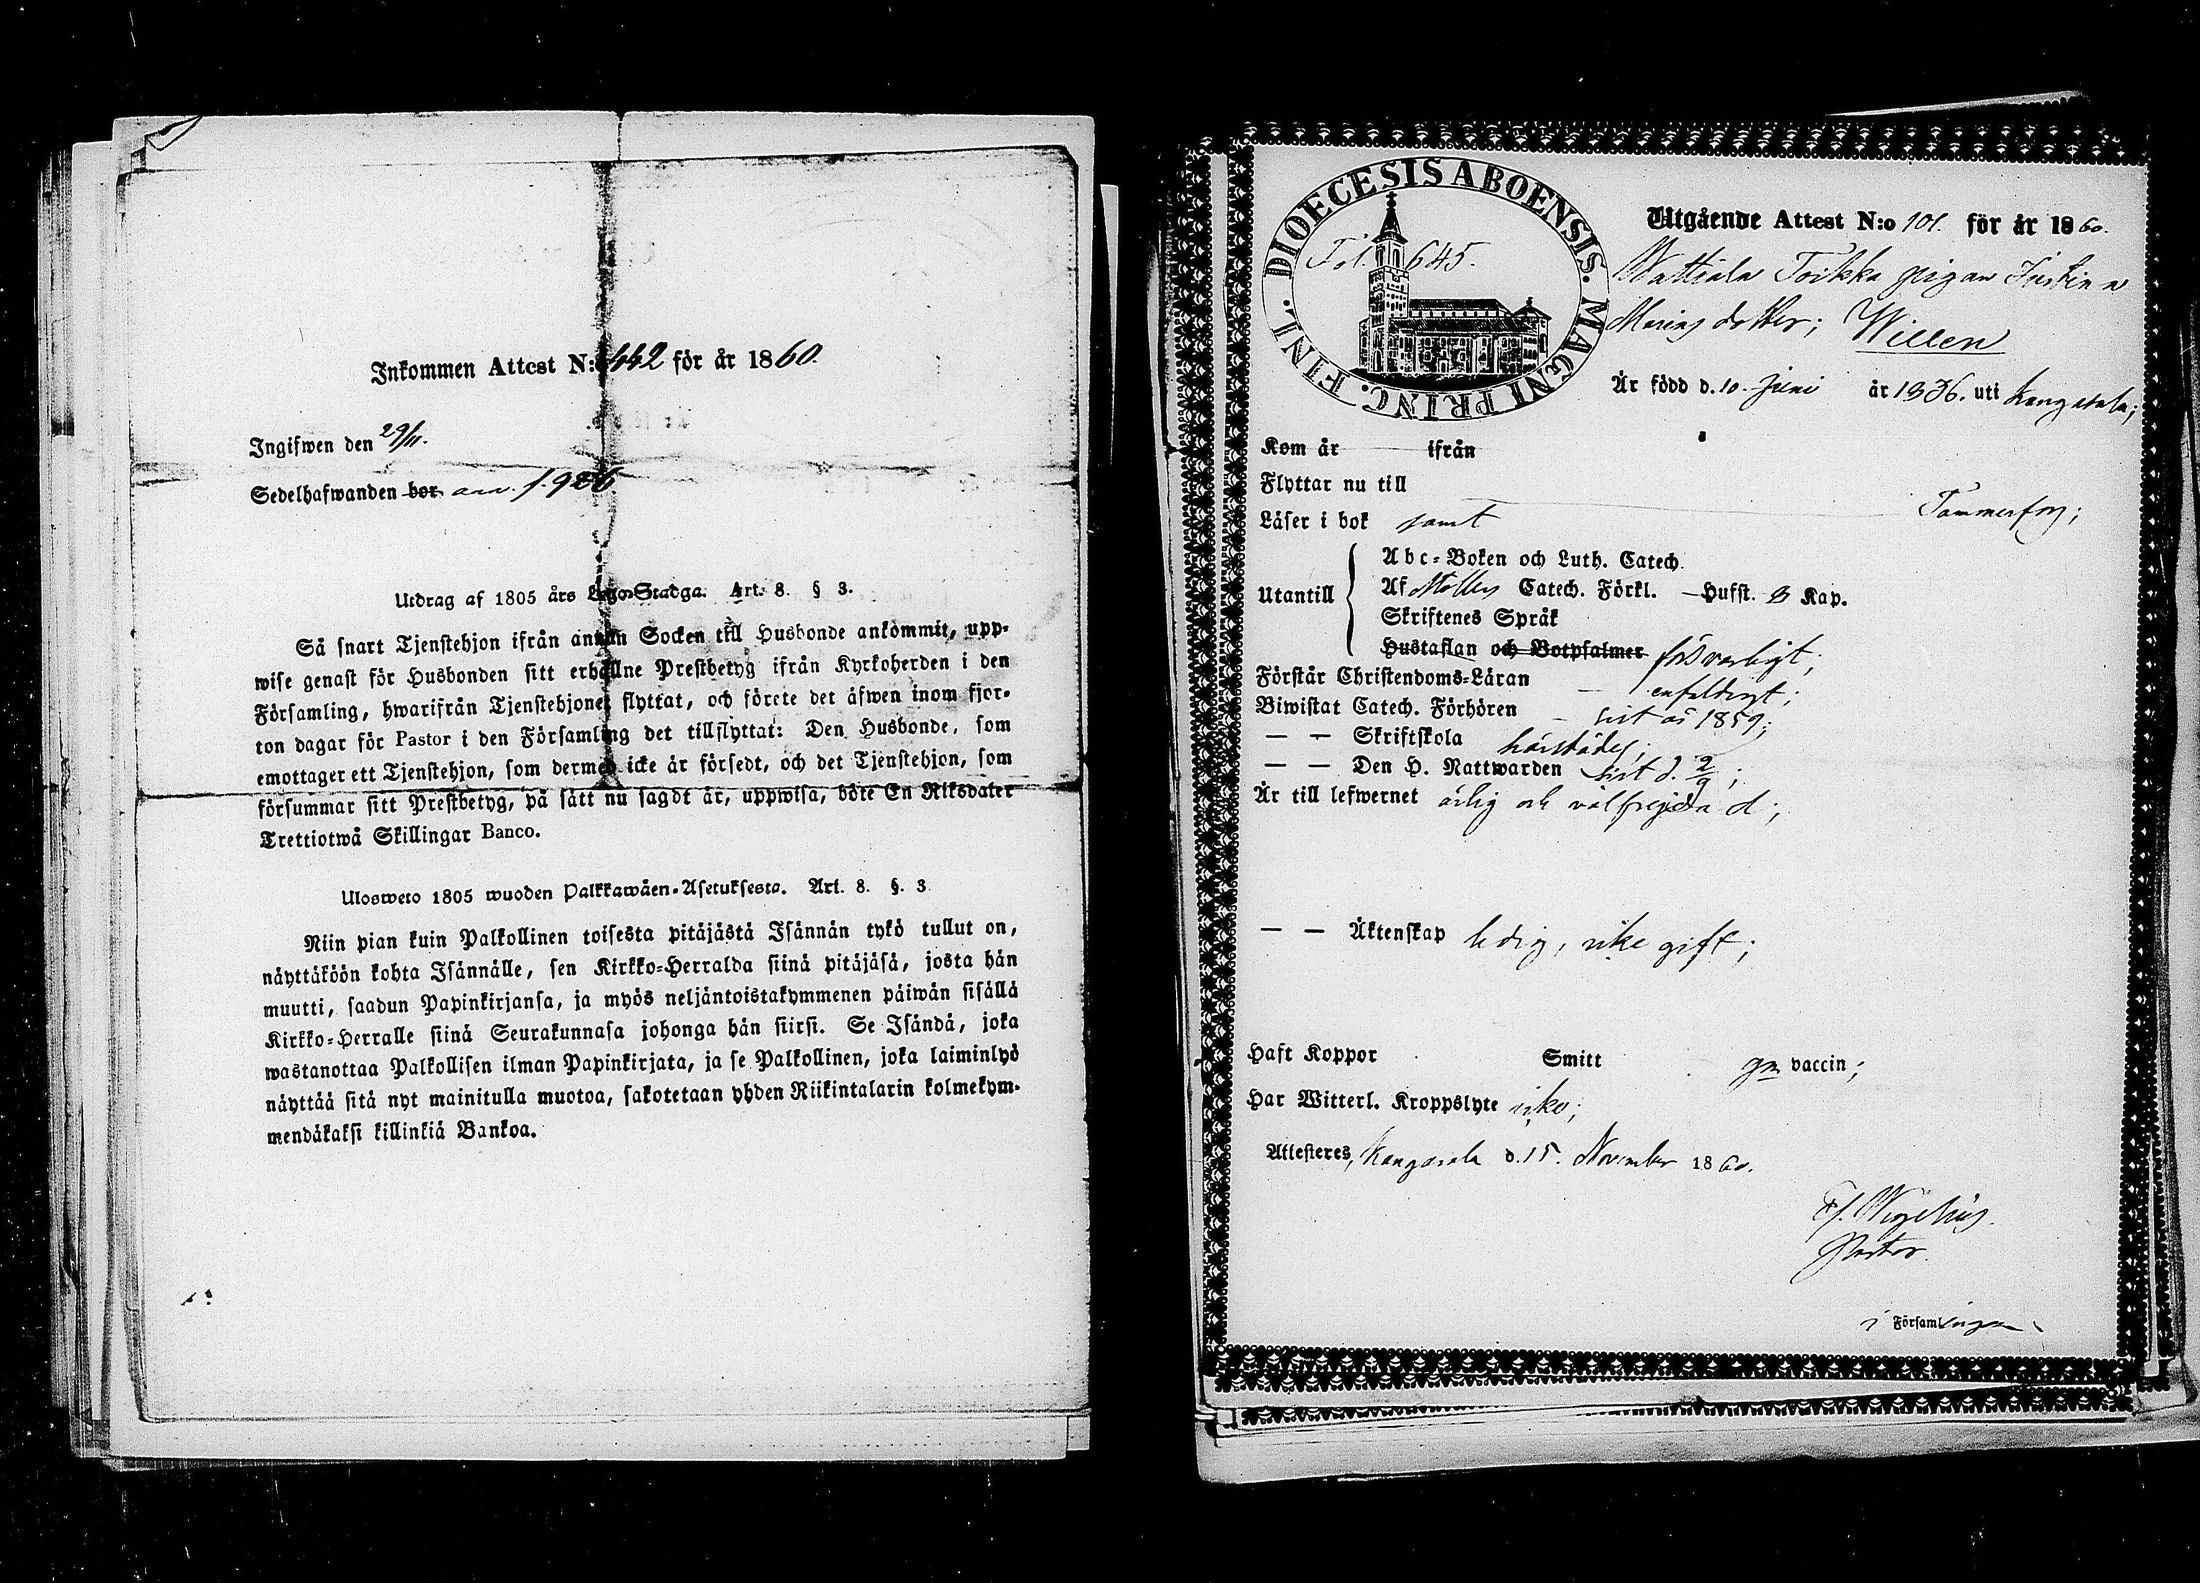 Inkommen Attest N:o 442 för år 1860.
Ingifwen den 29/11.
Sedelhafwanden bor ann. f. 986
Utdrag af 1805 års Lego-Stadga. Art. 8. § 3.
Så snart Tjenstehjon ifrån annan Socken till Husbonde ankommit, upp-
wise genast för Husbonden sitt erhållne Prestbetyg ifrån Kyrkoherden i den
Församling, hwarifrån Tjenstehjonet flyttat, och förete det äfwen inom fjor-
ton dagar för Pastor i den Församling det tillflyttat: Den Husbonde, som
emottager ett Tjenstehjon, som dermed icke är försedt, och det Tjenstehjon, som
försummar sitt Prestbetyg, på sätt nu sagdt är, uppwisa, böte En Riksdaler
Trettiotwå Skillingar Banco.
Ulosweto 1805 wuoden Palkkawäen-Asetuksesta. Art. 8. §. 3
Niin pian kuin Palkollinen toisesta pitäjästä Isännän tykö tullut on,
näyttäköön kohta Isännälle, sen Kirkko-Herralda siinä pitäjäsä, josta hän
muutti, saadun Papinkirjansa, ja myös neljäntoistakymmenen päiwän sisällä
Kirkko-Herralle siinä Seurakunnasa johonga hän siirsi. Se Isändä, joka
wastanottaa Palkollisen ilman Papinkirjata, ja se Palkollinen, joka laiminlyö
näyttää sitä nyt mainitulla muotoa, sakotetaan yhden Riikintalarin kolmekym-
mendäkaksi killinkiä Bankoa.
DIOECESIS ABOENSIS. MAGNI PRINC. FINL.
Fol. 645.
Utgående Attest N:o 101. för år 1860.
Wattiala Toikka pigan Justina
Mariasdotter; Willen
Är född d. 10 Juni år 1836. uti Kangasala;
Kom år ifrån
Flyttar nu till Tammerfors;
Läser i bok samt
Utantill
Abc-Boken och Luth. Catech.
Af Möllers Catech. Förkl. — Hufst. 3 Kap.
Skriftenes Språk
Hustaflan och Botpsalmer försvarligt;
Förstår Christendoms-Läran — enfaldigt;
Biwistat Catech. Förhören — sist år 1859;
— — Skriftskola härstädes;
— — Den H. Nattwarden sist d. 2/9;
Är till lefwernet ärlig och välfrejdad;
— — Äktenskap ledig, icke gift;
Haft Koppor Smitt gm vaccin;
Har Witterl. Kroppslyte icke;
Attesteres, Kangasala d. 15. November 1860.
Pastor.
i Församlingen